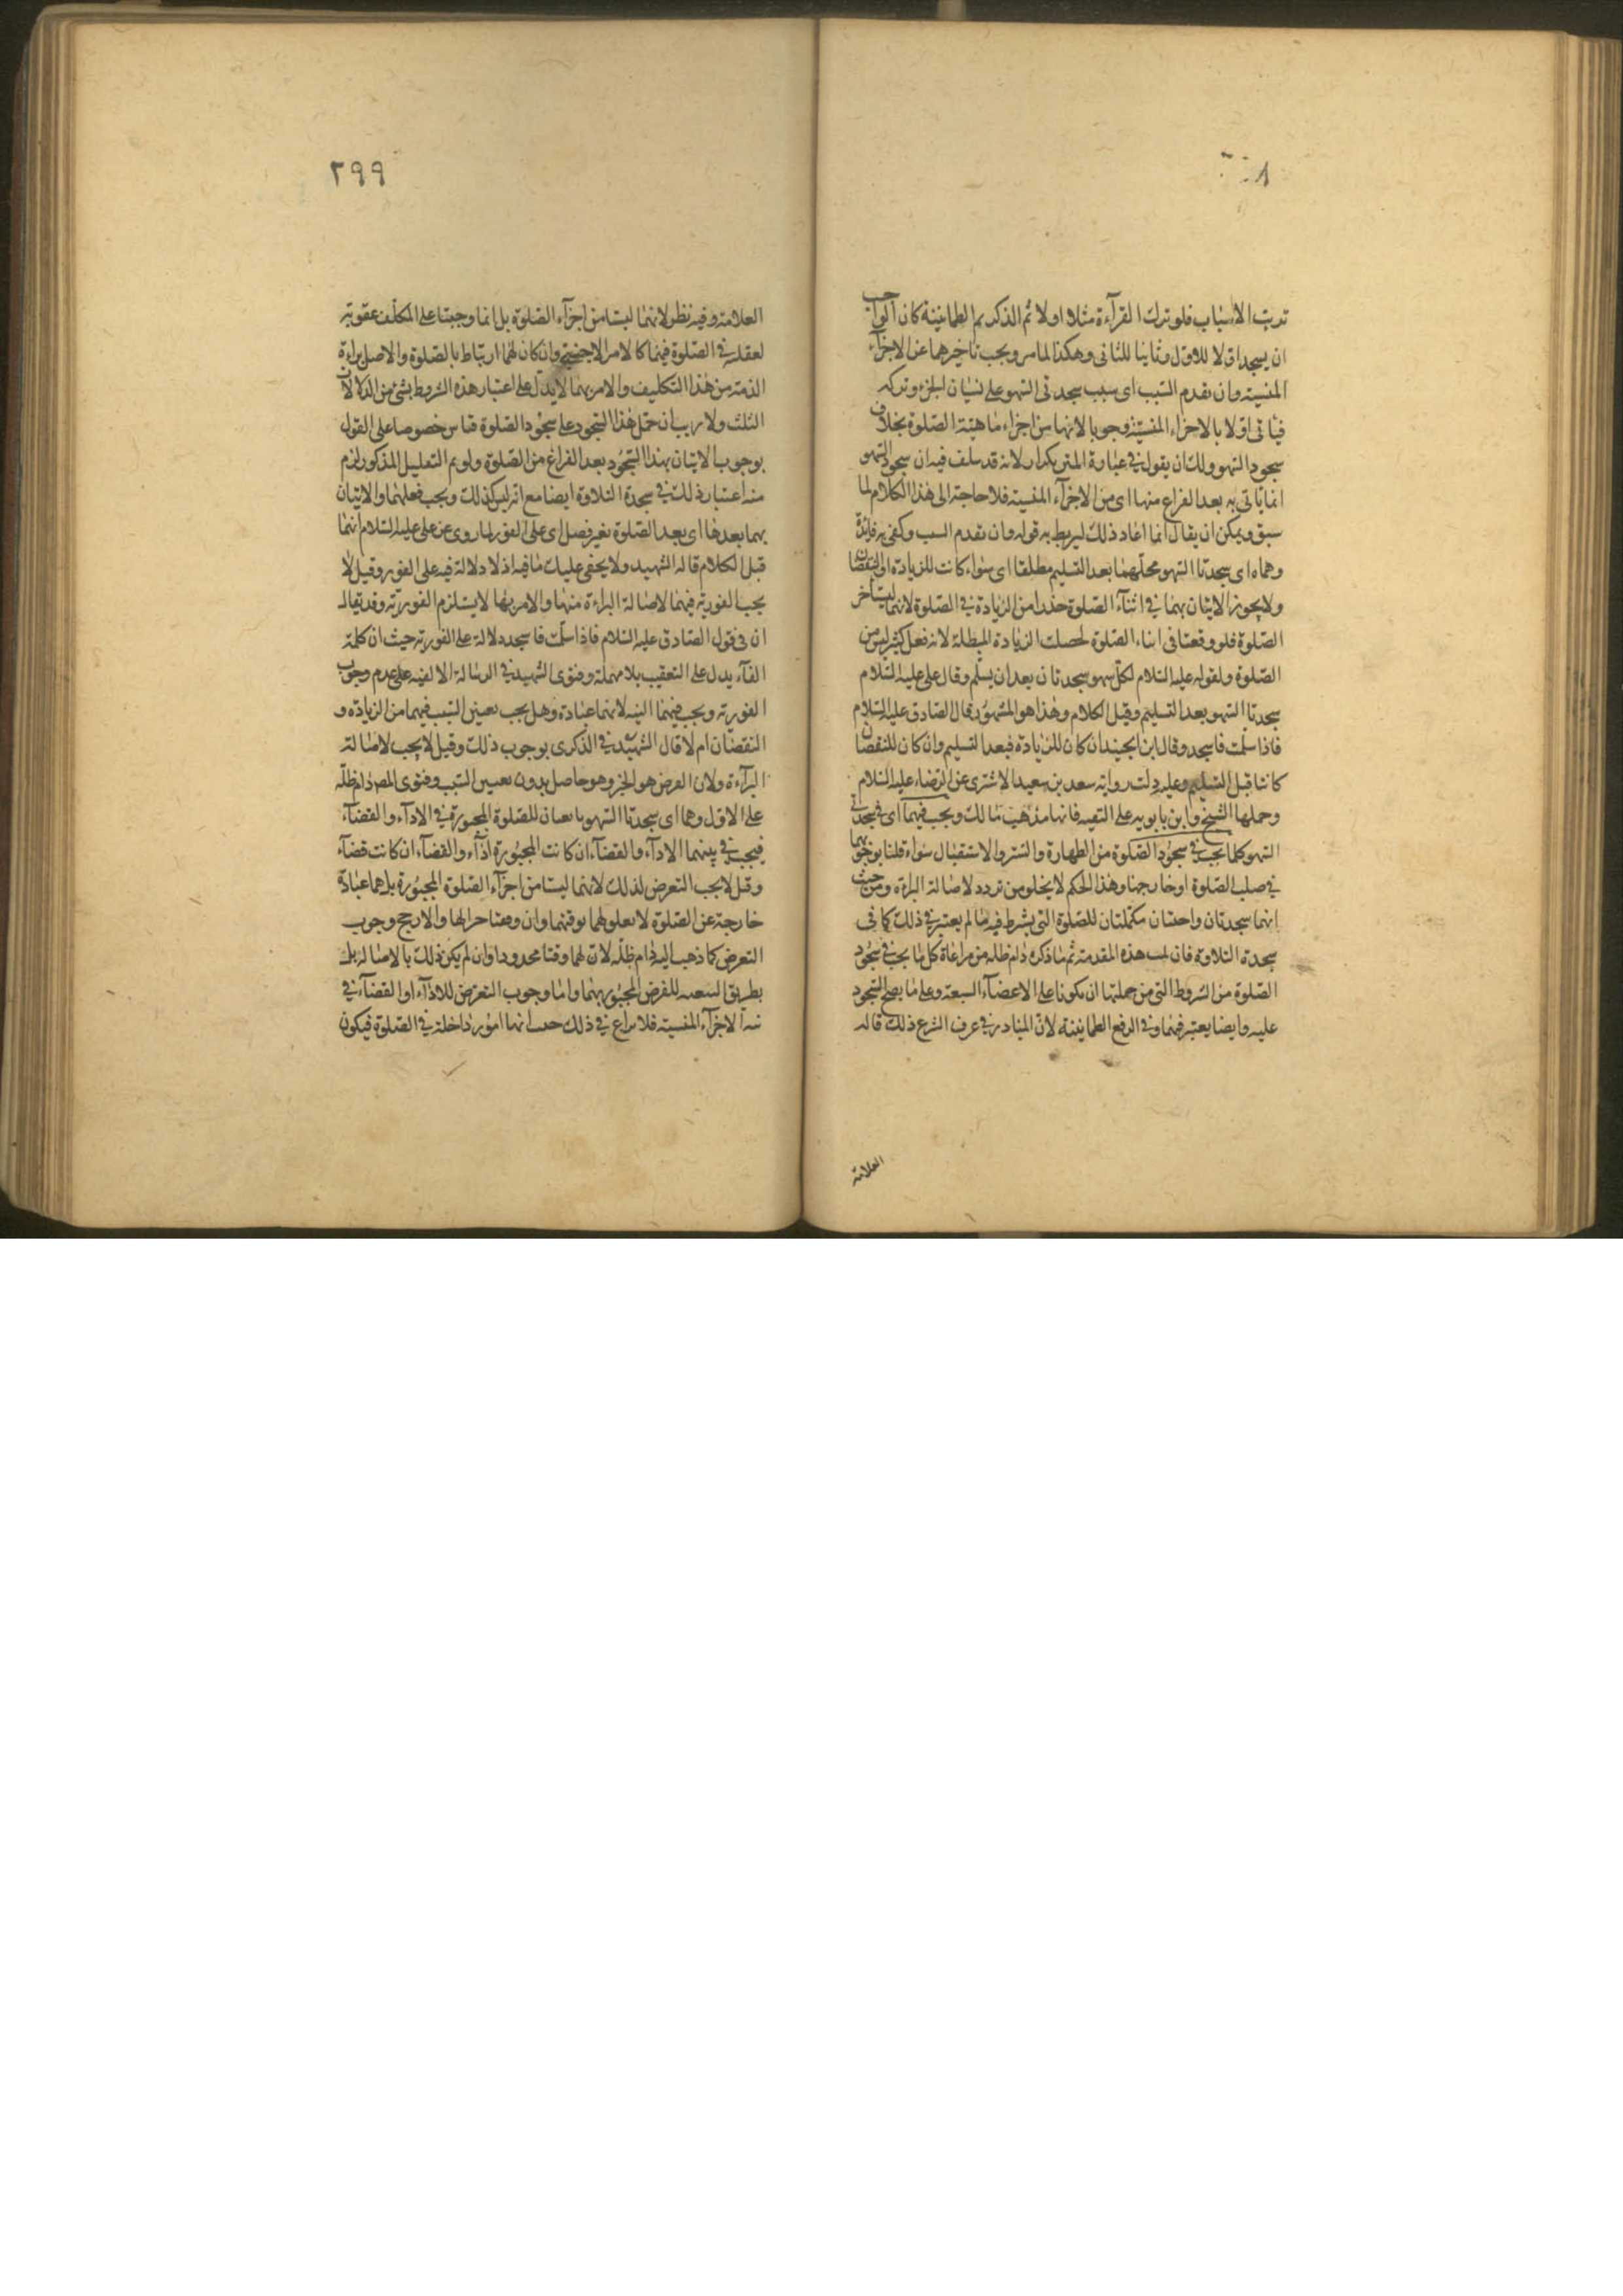 ترتيب الاسباب فلو ترك القرآءة مثلا اولا ثم الذكر ثم الطمانينة كان الواجب
ان يسجد اولا للاول وثانيا للثانى وهكذا لما مر ويجب تاخيرهما عن الاجزآء
المنسية وان تقدم السبب اى سبب سجدتى السهو على نسيان الجزء وتركه
فيأتى اولا بالاجزاء المنسية وجوبا لانها من اجزاء ماهية الصلوة بخلاف
سجود السهو ولك ان يقول فى عبارة المتن تكرار لانه قد سلف فيه ان سجود السهو
انما يأتى به بعد الفراغ منها اى من الاجزآء المنسية فلا حاجة الى هذا الكلام لما
سبق ويمكن ان يقال انما اعاد ذلك ليربط به قوله وان تقدم السبب وكفى به فائدة
وهما اى سجدتا السهو محلهما بعد التسليم مطلقا اى سواء كانت للزيادة او النقصان
ولا يجوز الاتيان بهما فى اثنآء الصلوة حذرا من الزيادة فى الصلوة لانهما ليستا من
الصلوة فلو وقعتا فى اثناء الصلوة لحصلت الزيادة المبطلة لانه فعل كثير ليس من
الصلوة ولقوله عليه السلام لكل سهو سجدتان بعد ان يسلم وقال على عليه السلام
سجدتا السهو بعد التسليم وقبل الكلام وهذا هو المشهور قال الصادق عليه السلام
فاذا سلمت فاسجد وقال ابن الجنيد ان كان للزيادة فبعد التسليم وان كان للنقصان
كانتا قبل التسليم وعليه دلت رواية سعد بن سعيد الاشترى عن الرضاء عليه السلام
وحملها الشيخ وابن بابويه على التقيه فانها مذهب مالك ويجب فيهما اى فى سجدتى
السهو كلما يجب فى سجود الصلوة من الطهارة والستر والاستقبال سواء قلنا بوجوبهما
فى صلب الصلوة او خارجها وهذا الحكم لا يخلو من تردد لاصالة البراءة ومن حيث
انهما سجدتان واحدتان مكملتان للصلوة التى يشرط فيه ما لم يعتبر فى ذلك كما فى
سجدة التلاوة فان هذه المقدمة ثم ما ذكره دام ظله من مراعاة كل ما يجب فى سجود
الصلوة من الشروط التى من جملتها ان يكونا على الاعضآء السبعة وعلى ما يصح السجود
عليه وايضا يعتبر فيهما وفى الرفع الطمانينة لان المتبادر فى عرف الشرع ذلك قاله
العلامة
٢٩٩
العلامة وفيه نظر لانهما ليستا من اجزآء الصلوة بل انما وجبتا على المكلف عقوبة
لغفلته فى الصلوة فهما كالامر الاجنبى وان كان لهما ارتباط بالصلوة والاصل براءة
الذمة من هذا التكليف والامر بهما لا يدل على اعتبار هذه الشروط بشئ من الدلالات
الثلث ولا ريب ان حمل هذا السجود على سجود الصلوة قياس خصوصا على القول
بوجوب الاتيان بهذا السجود بعد الفراغ من الصلوة ولو تم التعليل المذكور لزم
منه اعتبار ذلك فى سجدة التلاوة ايضا مع انه ليس كذلك ويجب فعلهما والاتيان
بهما بعدها اى بعد الصلوة بغير فصل اى على الفور لما روى عن على عليه السلام انهما
قبل الكلام قاله الشهيد ولا يخفى عليك ما فيه اذ لا دلالة فيه على الفور وقيل لا
يجب الفورية فيهما لاصالة البراءة منها والامر بها لا يستلزم الفورية وقد يقال
ان فى قول الصادق عليه السلام فاذا سلمت فاسجد دلالة على الفورية حيث ان كلمة
الفآء يدل على التعقيب بلا مهملة وفتوى الشهيد فى الرسالة الالفيه على عدم وجوب
الفورية ويجب فيهما النية لانهما عبادة وهل يجب تعيين السبب فيهما من الزيادة و
النقصان ام لا قال الشهيد فى الذكرى بوجوب ذلك وقيل لا يجب لاصالة
البرآءة ولان الغرض هو الجبر وهو حاصل بدون تعيين السبب وفتوى المص دام ظله
على الاول وهما اى سجدتا السهو تابعان للصلوة المجبورة فى الادآء والقضآء
فيجب فى نيتهما الادآء والقضآء ان كانت المجبورة ادآء والقضآء ان كانت قضآء
وقيل لا يجب التعرض لذلك لانهما ليستا من اجزآء الصلوة المجبورة بل هما عبادة
خارجة عن الصلوة لا تعلق لهما بوقتهما وان وقعتا جبرا لها والارجح وجوب
التعرض كما ذهب اليه دام ظله لان لهما وقتا محدودا وان لم يكن ذلك بالاصالة بل
بطريق التبعية للفرض المجبور بهما واما وجوب التعرض للادآء او القضآء فى
نية الاجزآء المنسية فلا نزاع فى ذلك حيث انها امور داخلة فى الصلوة فيكون